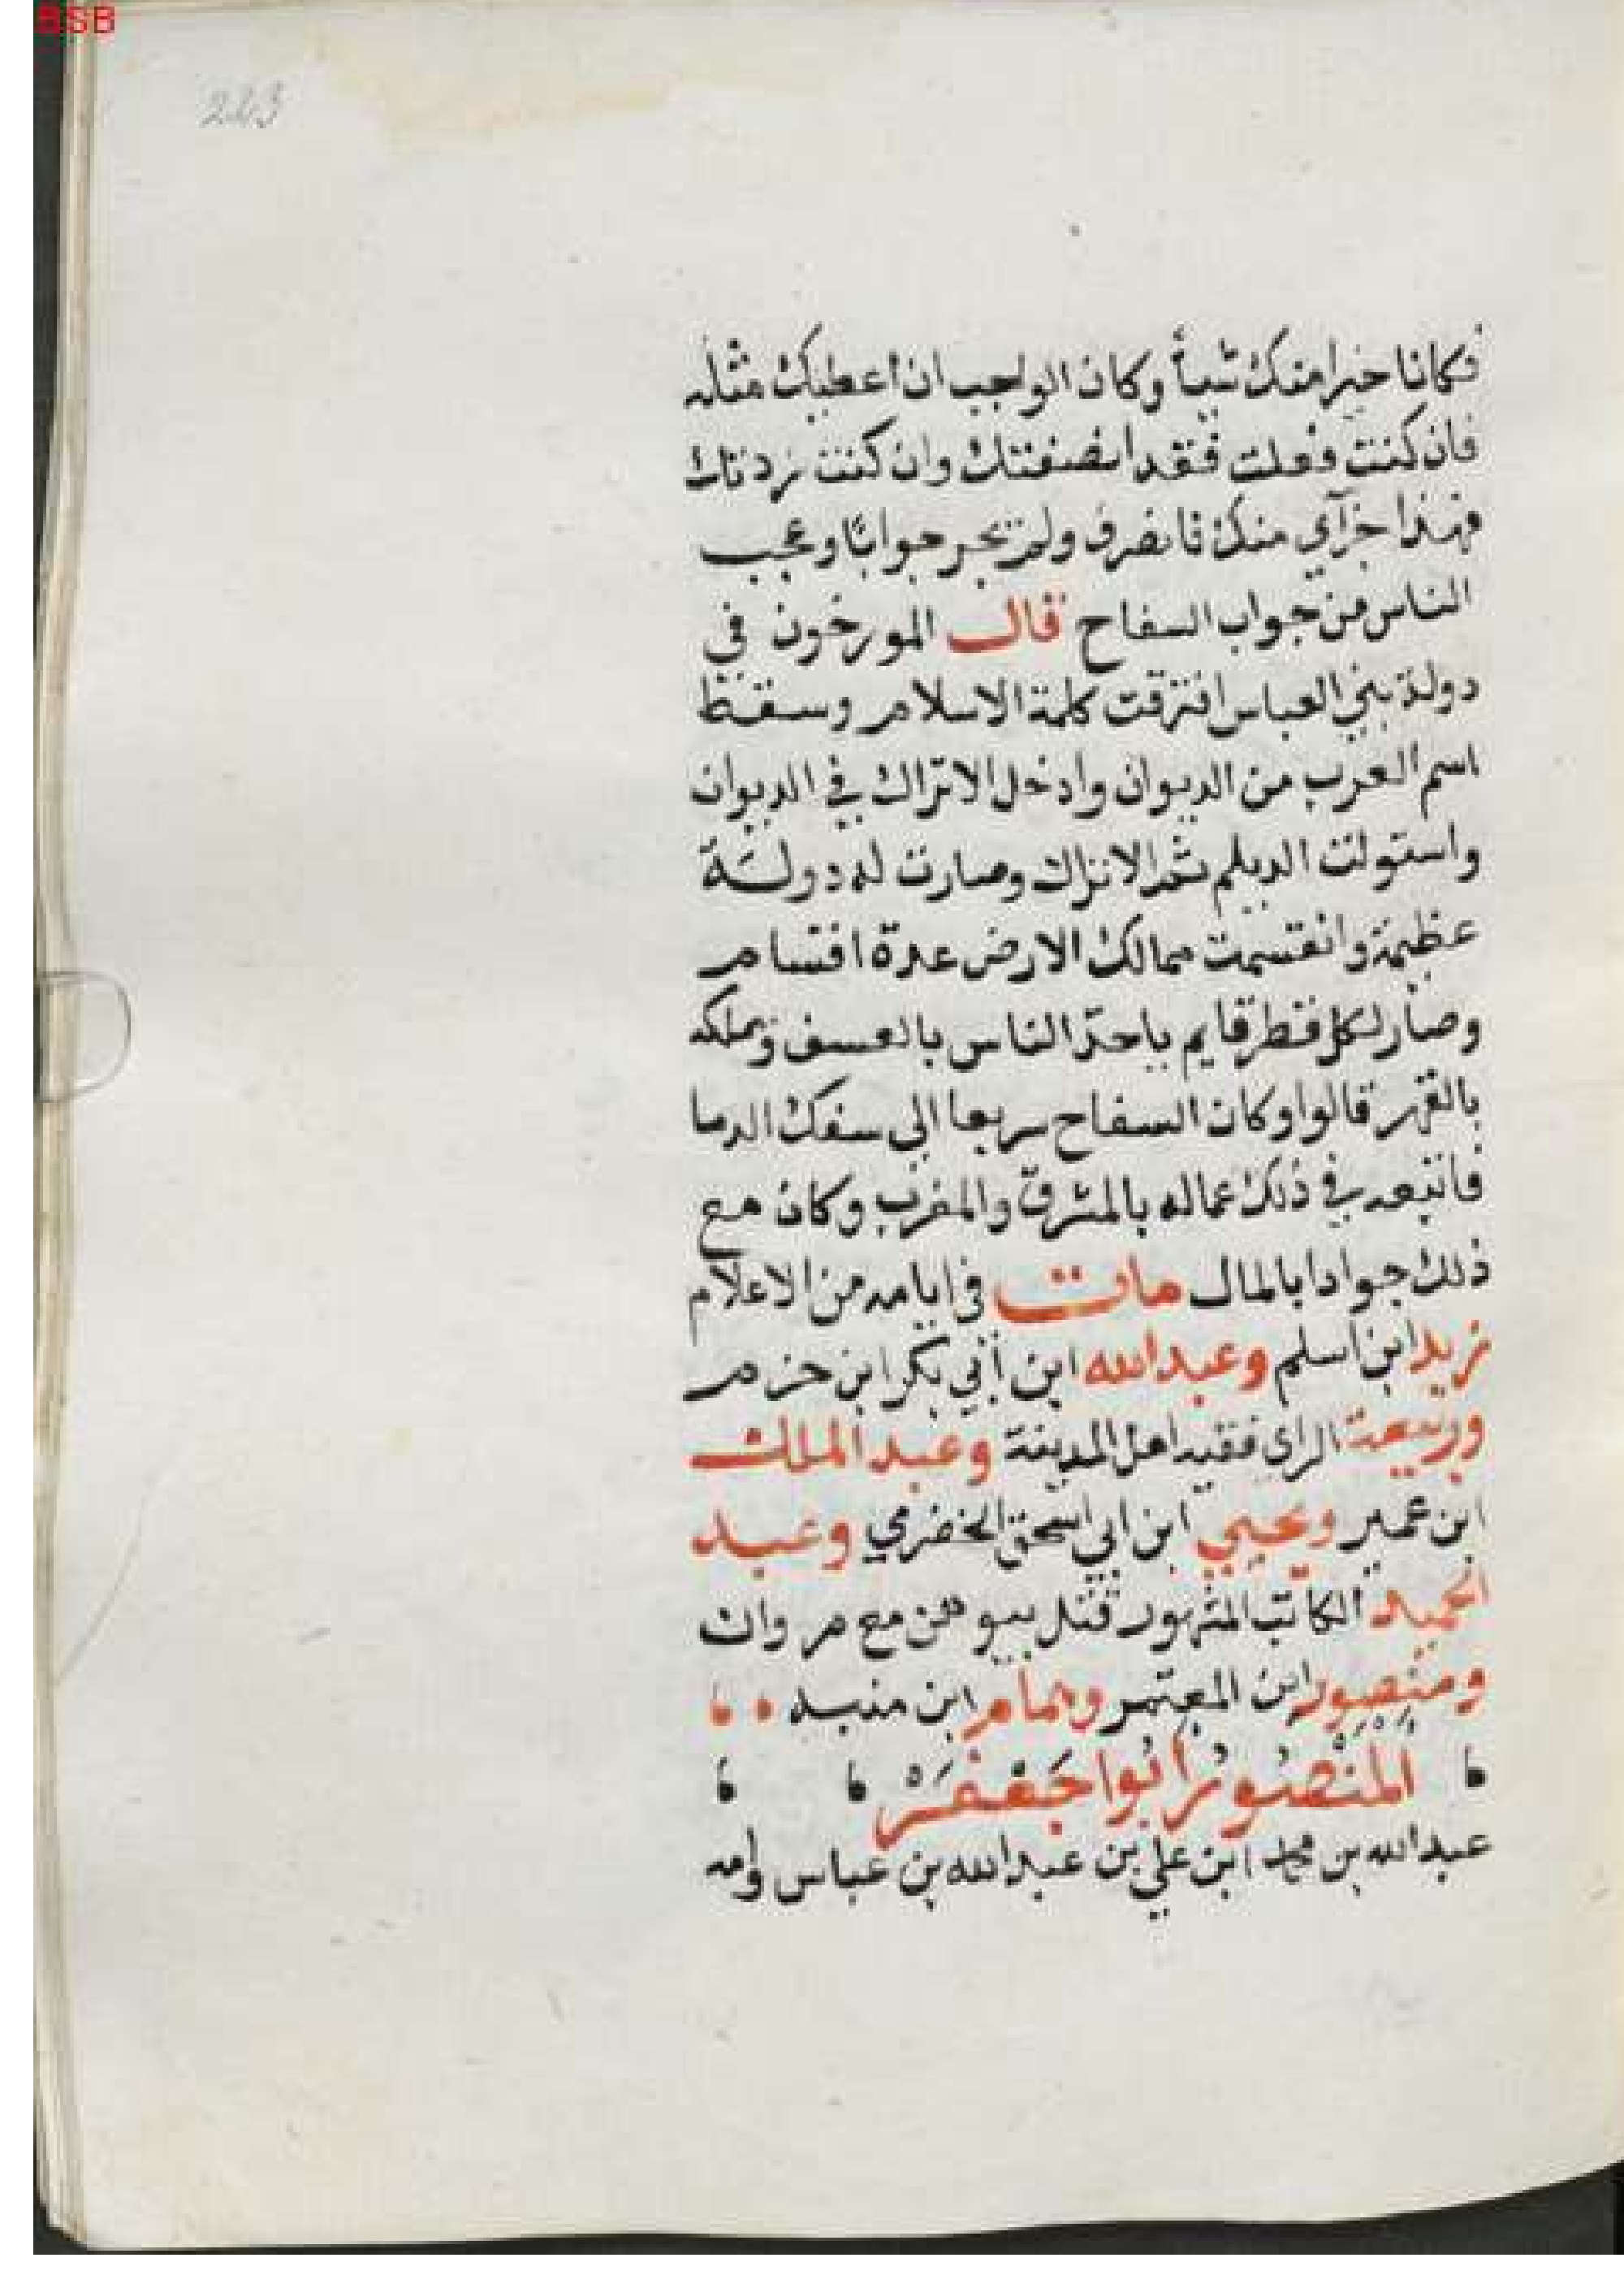 BSB
243
فكانا خيرا منك شيأ وكان الواجب ان اعطيك مثله
فان كنت فعلت فقد انصفتك وان كنت زدتك
فهذا جزآي منك فانصرف ولم يحر جوابًا وعجب
الناس من جواب السفاح قال المورخون في
دولة بني العباس افترقت كلمة الاسلام وسقط
اسم العرب من الديوان وادخل الاتراك في الديوان
واستولت الديلم ثم الاتراك وصارت له دولة
عظيمة وانقسمت ممالك الارض عدة اقسام
وصار لكل قطر قايم ياخذ الناس بالعسف ويملكه
بالقهر قالوا وكان السفاح سريعا الى سفك الدما
فاتبعه في ذلك عماله بالمشرق والمغرب وكان مع
ذلك جوادا بالمال مات في ايامه من الاعلام
زيد ابن اسلم وعبد الله ابن أبي بكر ابن حزم
وربيعة الراي فقيه اهل المدينة وعبد الملك
ابن عمير ويحيي ابن ابي اسحق الحضرمي وعبد
الحميد الكاتب المشهور قتل ببوصير مع مروان
ومنصور ابن المعتمر وهمام ابن منبه
المنصور ابوا جعفر
عبد الله بن محمد ابن علي بن عبد الله بن عباس وامه